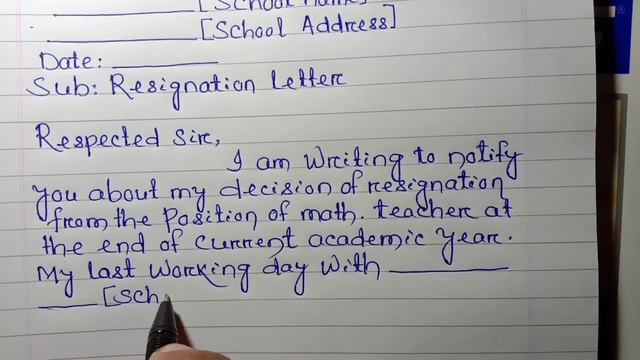 _____________ [School Name]
_____________ [School Address]
Date: ___________
Sub: Resignation Letter
Respected Sir,
I am writing to notify
you about my decision of resignation
from the position of math. teacher at
the end of current academic year.
My last working day with ___________
_____ [Sch